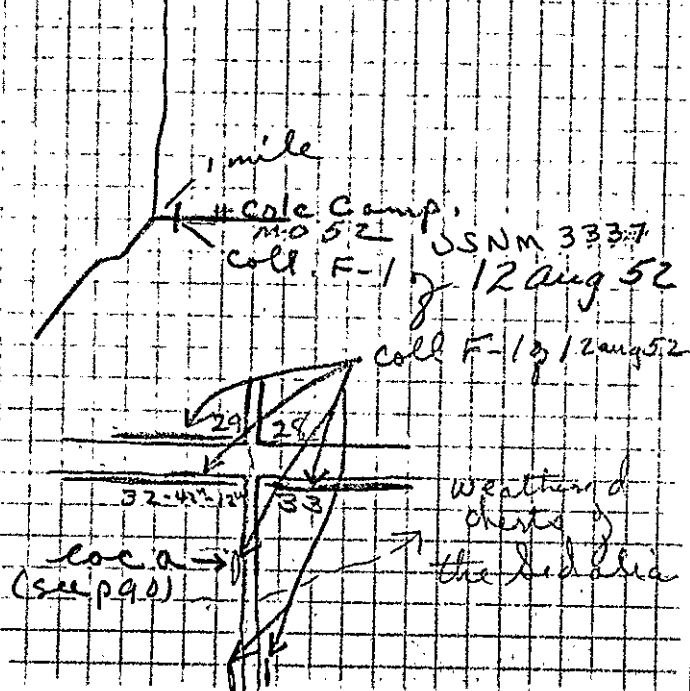 1 mile
Cole Camp.
MO 52 USNM 3337
Coll. F-1 of 12 Aug 52
Coll F-1 of 12 Aug 52
29 28
32 33
Weathered
cherts of
the Sedalia
Loc a
(see p 90)